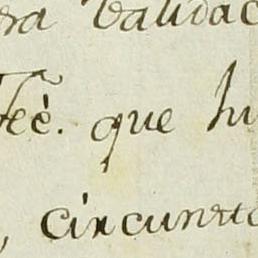 ra validac
Feè. que hi
, circunsta